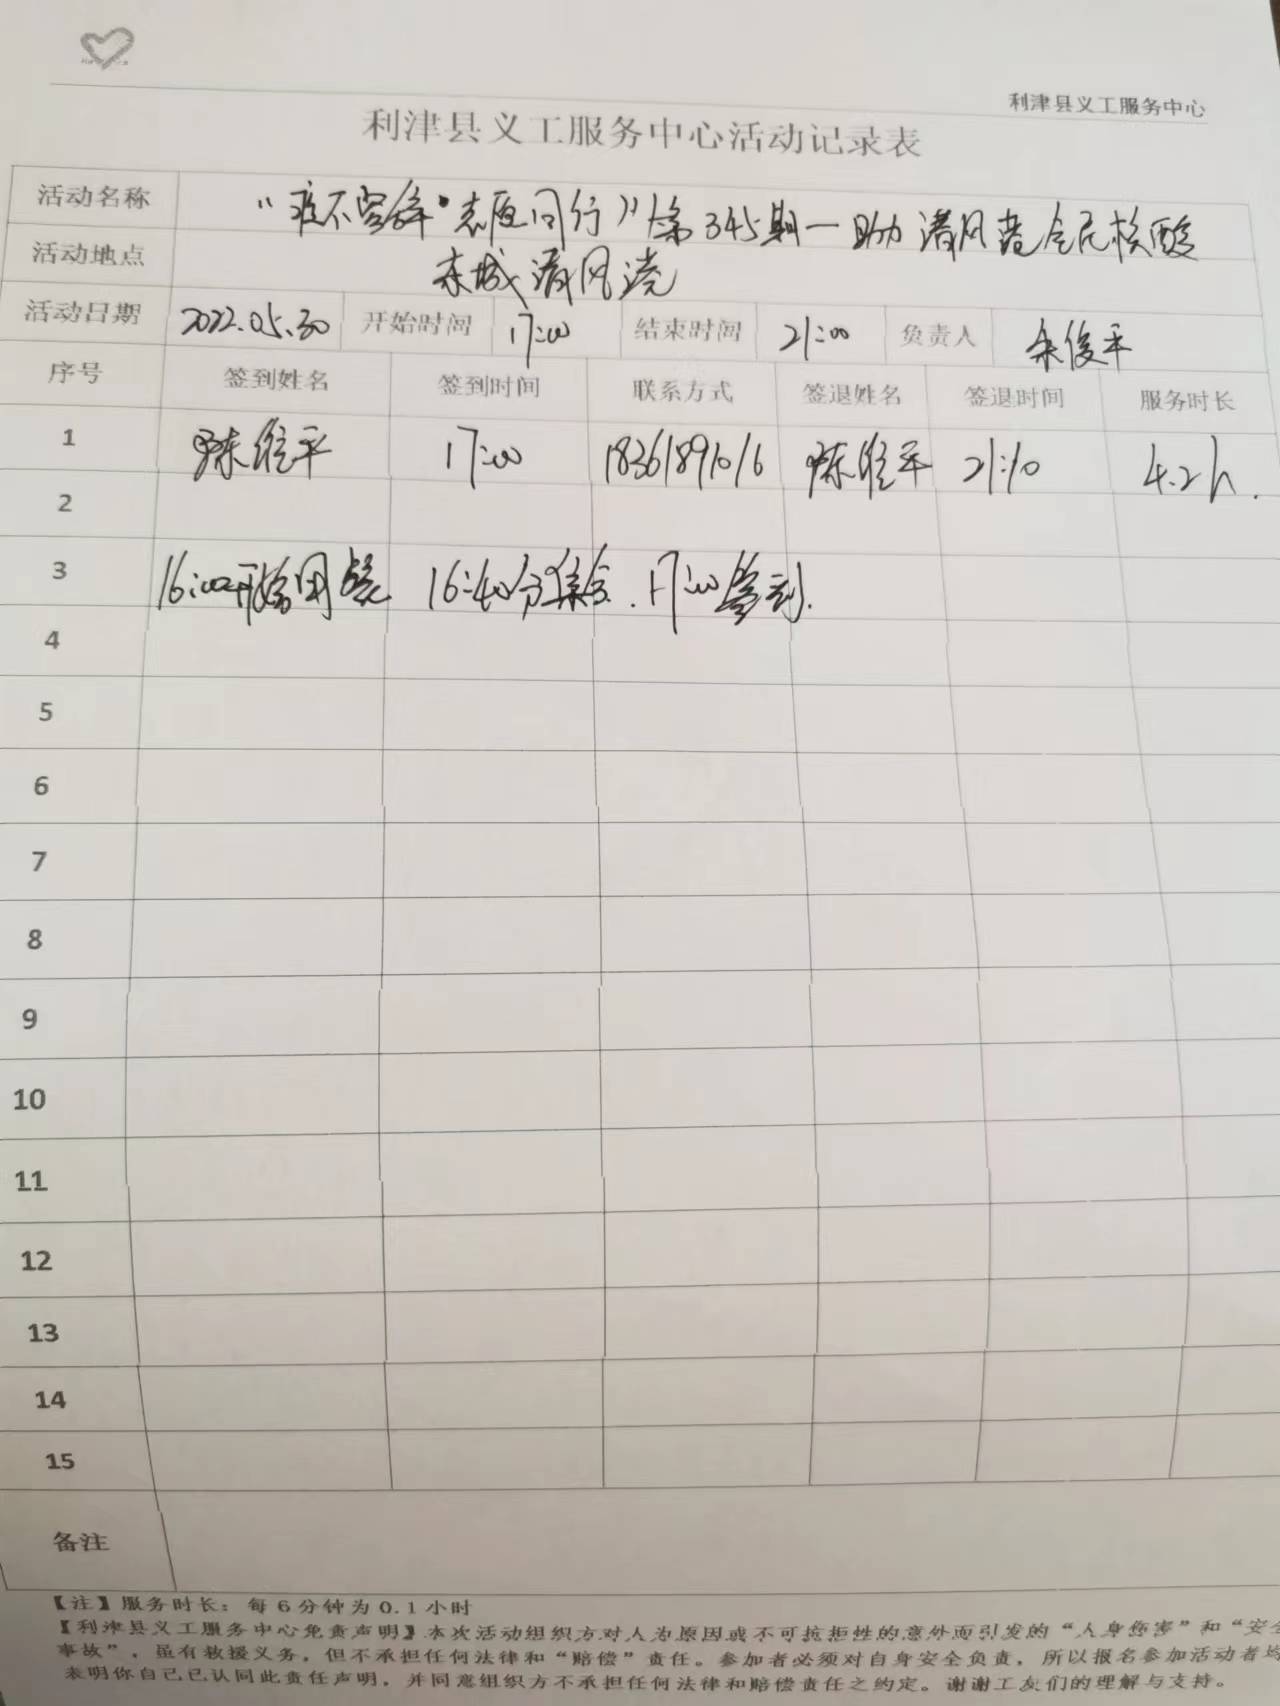 利津县义工服务中心
利津县义工服务中心活动记录表
活动名称 “疫不容辞·志愿同行”第345期一助力清风港全民核酸
活动地点 东城清风港
活动日期 2022.05.30 开始时间 17:00 结束时间 21:00 负责人 俊平
序号 签到姓名 签到时间 联系方式 签退姓名 签退时间 服务时长
1 陈维平 17:00 18361891016 陈维平 21:10 4.2h.
2
3 16:00开始用餐 16:40分集合.17:00签到.
4
5
6
7
8
9
10
11
12
13
14
15
备注
【注】服务时长：每6分钟为0.1小时
【利津县义工服务中心免责声明】本次活动组织方对人为原因或不可抗拒性的意外而引发的“人身伤害”和“安全
事故”，虽有救援义务，但不承担任何法律和“赔偿”责任。参加者必须对自身安全负责，所以报名参加活动者均
表明你自己已认同此责任声明，并同意组织方不承担任何法律和赔偿责任之约定。谢谢工友们的理解与支持。